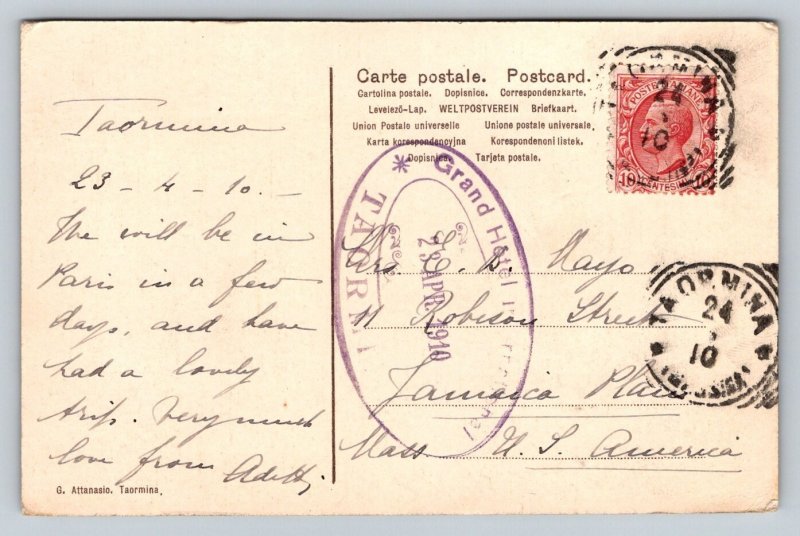 Carte postale. Postcard.
Cartolina postale. Dopisnice. Correspondenzkarte.
Levelező-Lap. WELTPOSTVEREIN Briefkaart.
Union Postale universelle Unione postale universale,
Karta korespondencyjna Korespondenoni listek.
Dopisnice. Tarjeta postale.
POSTE ITALIANE
10
TAORMINA
24
10
Taormina
23 - 4 - 10. -
We will be in
Paris in a few
days, and have
had a lovely
trip. Very much
love from
* Grand Hotel International
TAORMI
23 APR. 1910
Mrs E. D. Mayo
11 Robeson Street
Jamaica Plain
Mass. U. S. America
TAORMINA
24
10
(MESSINA)
G. Attanasio. Taormina.